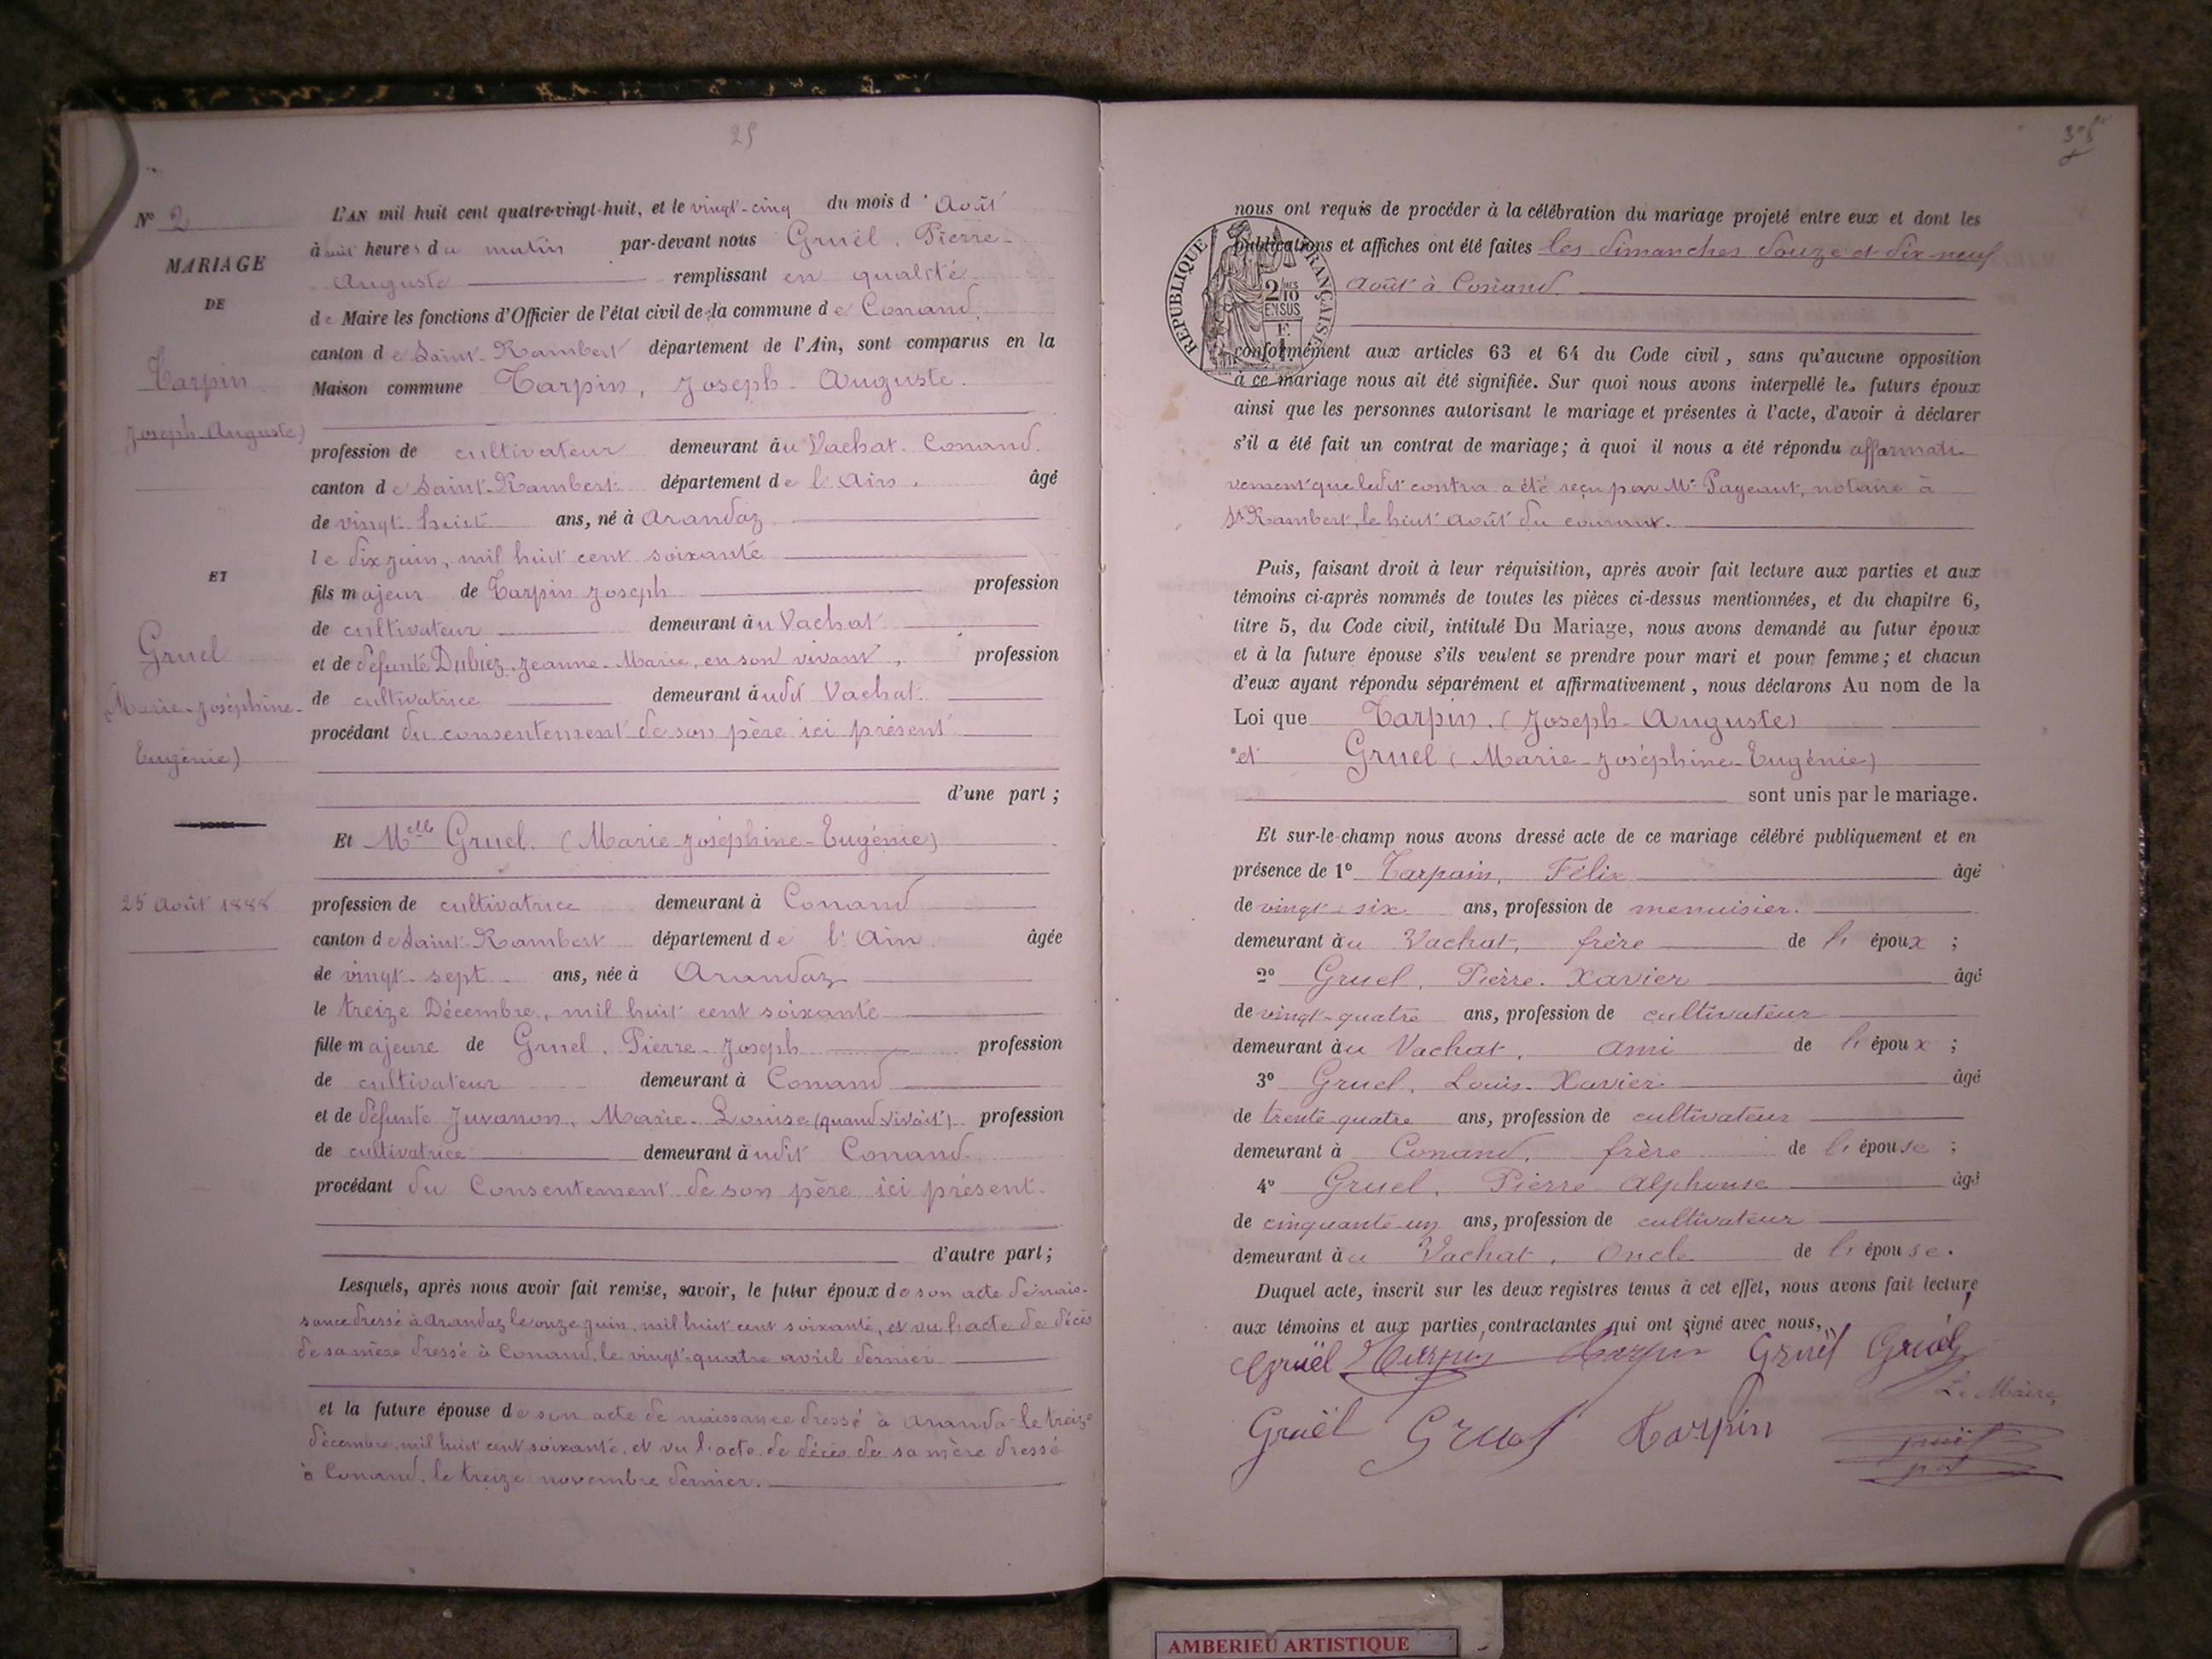 25
N° 2
MARIAGE
DE
Tarpin
Joseph-Auguste)
ET
Gruel
Marie-Joséphine-
Eugénie)
25 Août 1888
L'AN mil huit cent quatre-vingt-huit, et le vingt-cinq du mois d'Août
à huit heures du matin par-devant nous Gruël, Pierre-
Auguste remplissant en qualité
de Maire les fonctions d'Officier de l'état civil de la commune de Conand,
canton de Saint-Rambert département de l'Ain, sont comparus en la
Maison commune Tarpin, Joseph-Auguste.
profession de cultivateur demeurant àu Vachat-Conand.
canton de Saint-Rambert département de l'Ain, âgé
de vingt-huit ans, né à Arandaz
le dix juin, mil huit cent soixante
fils majeur de Tarpin Joseph profession
de cultivateur demeurant àu Vachat
et de défunte Dubiez, Jeanne-Marie, en son vivant, profession
de cultivatrice demeurant àudit Vachat
procédant du consentement de son père ici présent
d'une part ;
Et Melle Gruel. (Marie-Joséphine-Eugénie)
profession de cultivatrice demeurant à Conand
canton de Saint-Rambert département de l'Ain âgée
de vingt-sept ans, née à Arandaz
le treize Décembre, mil huit cent soixante
fille majeure de Gruel, Pierre-Joseph profession
de cultivateur demeurant à Conand
et de défunte Juvanon, Marie-Louise (quand vivait) profession
de cultivatrice demeurant àudit Conand
procédant du Consentement de son père ici présent.
d'autre part ;
Lesquels, après nous avoir fait remise, savoir, le futur époux de son acte de nais-
sance dressé à Arandaz le onze juin, mil huit cent soixante, et vu l'acte de décès
de sa mère dressé à Conand, le vingt-quatre avril dernier
et la future épouse de son acte de naissance dressé à Aranda le treize
décembre, mil huit cent soixante, et vu l'acte de décès de sa mère dressé
à Conand, le treize novembre dernier.
nous ont requis de procéder à la célébration du mariage projeté entre eux et dont les
publications et affiches ont été faites les dimanches douze et dix-neuf
Août à Conand.
RÉPUBLIQUE FRANÇAISE
2/10
EN SUS
conformément aux articles 63 et 64 du Code civil, sans qu'aucune opposition
à ce mariage nous ait été signifiée. Sur quoi nous avons interpellé les futurs époux
ainsi que les personnes autorisant le mariage et présentes à l'acte, d'avoir à déclarer
s'il a été fait un contrat de mariage; à quoi il nous a été répondu affirmati-
vement que ledit contra a été reçu par Me Pageaut, notaire à
St Rambert, le huit Août du courant.
Puis, faisant droit à leur réquisition, après avoir fait lecture aux parties et aux
témoins ci-après nommés de toutes les pièces ci-dessus mentionnées, et du chapitre 6,
titre 5, du Code civil, intitulé Du Mariage, nous avons demandé au futur époux
et à la future épouse s'ils veulent se prendre pour mari et pour femme ; et chacun
d'eux ayant répondu séparément et affirmativement, nous déclarons Au nom de la
Loi que Tarpin. (Joseph-Auguste)
et Gruel (Marie-Joséphine-Eugénie)
sont unis par le mariage.
Et sur-le-champ nous avons dressé acte de ce mariage célébré publiquement et en
présence de 1° Tarpain, Félix âgé
de vingt-six ans, profession de menuisier.
demeurant àu Vachat, frère de l'époux ;
2° Gruel, Pierre-Xavier âgé
de vingt-quatre ans, profession de cultivateur
demeurant àu Vachat, ami de l'époux ;
3° Gruel, Louis-Xavier âgé
de trente-quatre ans, profession de cultivateur
demeurant à Conand, frère de l'épouse ;
4° Gruel, Pierre Alphonse âgé
de cinquante-un ans, profession de cultivateur
demeurant àu Vachat, Oncle de l'épouse.
Duquel acte, inscrit sur les deux registres tenus à cet effet, nous avons fait lecture
aux témoins et aux parties contractantes qui ont signé avec nous,
Gruël Tarpin Tarpin Gruël Gruël
Le Maire,
Gruël Gruel Tarpin
AMBERIEU ARTISTIQUE